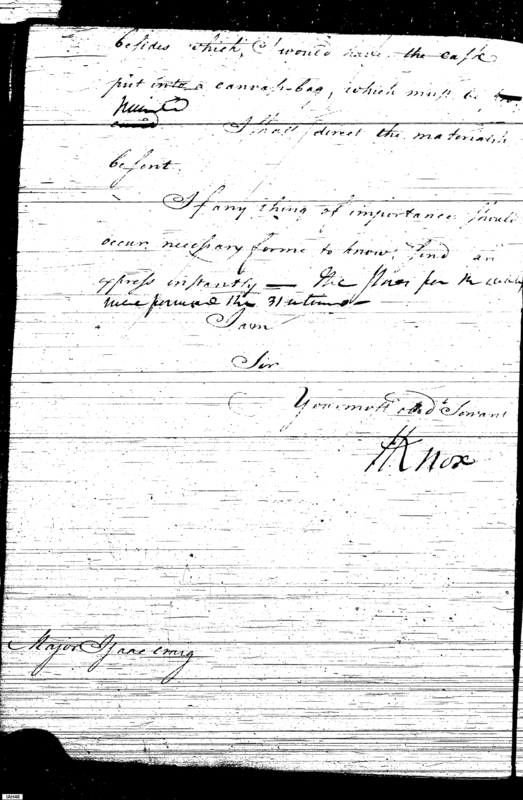 besides which, I would have the cask
put into a canvass-bag, which must be
I shall direct the materials
be sent.
If any thing of importance should
occur, necessary for me to know, send an
express instantly — The stores for the
were forward the 31 ultimo —
I am
Sir
Your most obedt. Servant
HKnox
Major Isaac Craig
IAH48